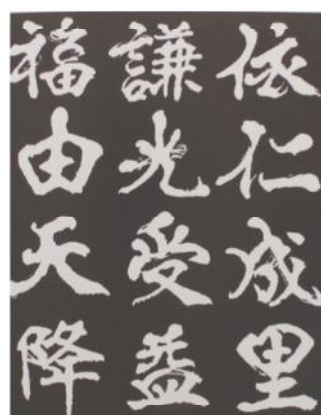 依仁成里
謙光受益
福由天降